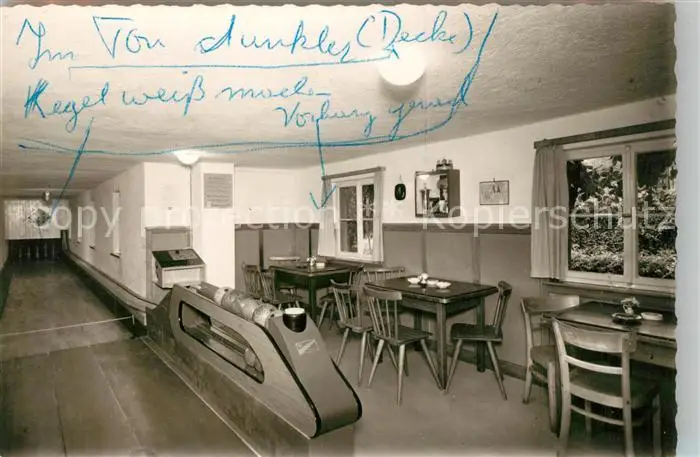 Im Ton dunkler (Decke)
Kegel weiß machen
Vorhang gerad
copy-right - Kopierschutz